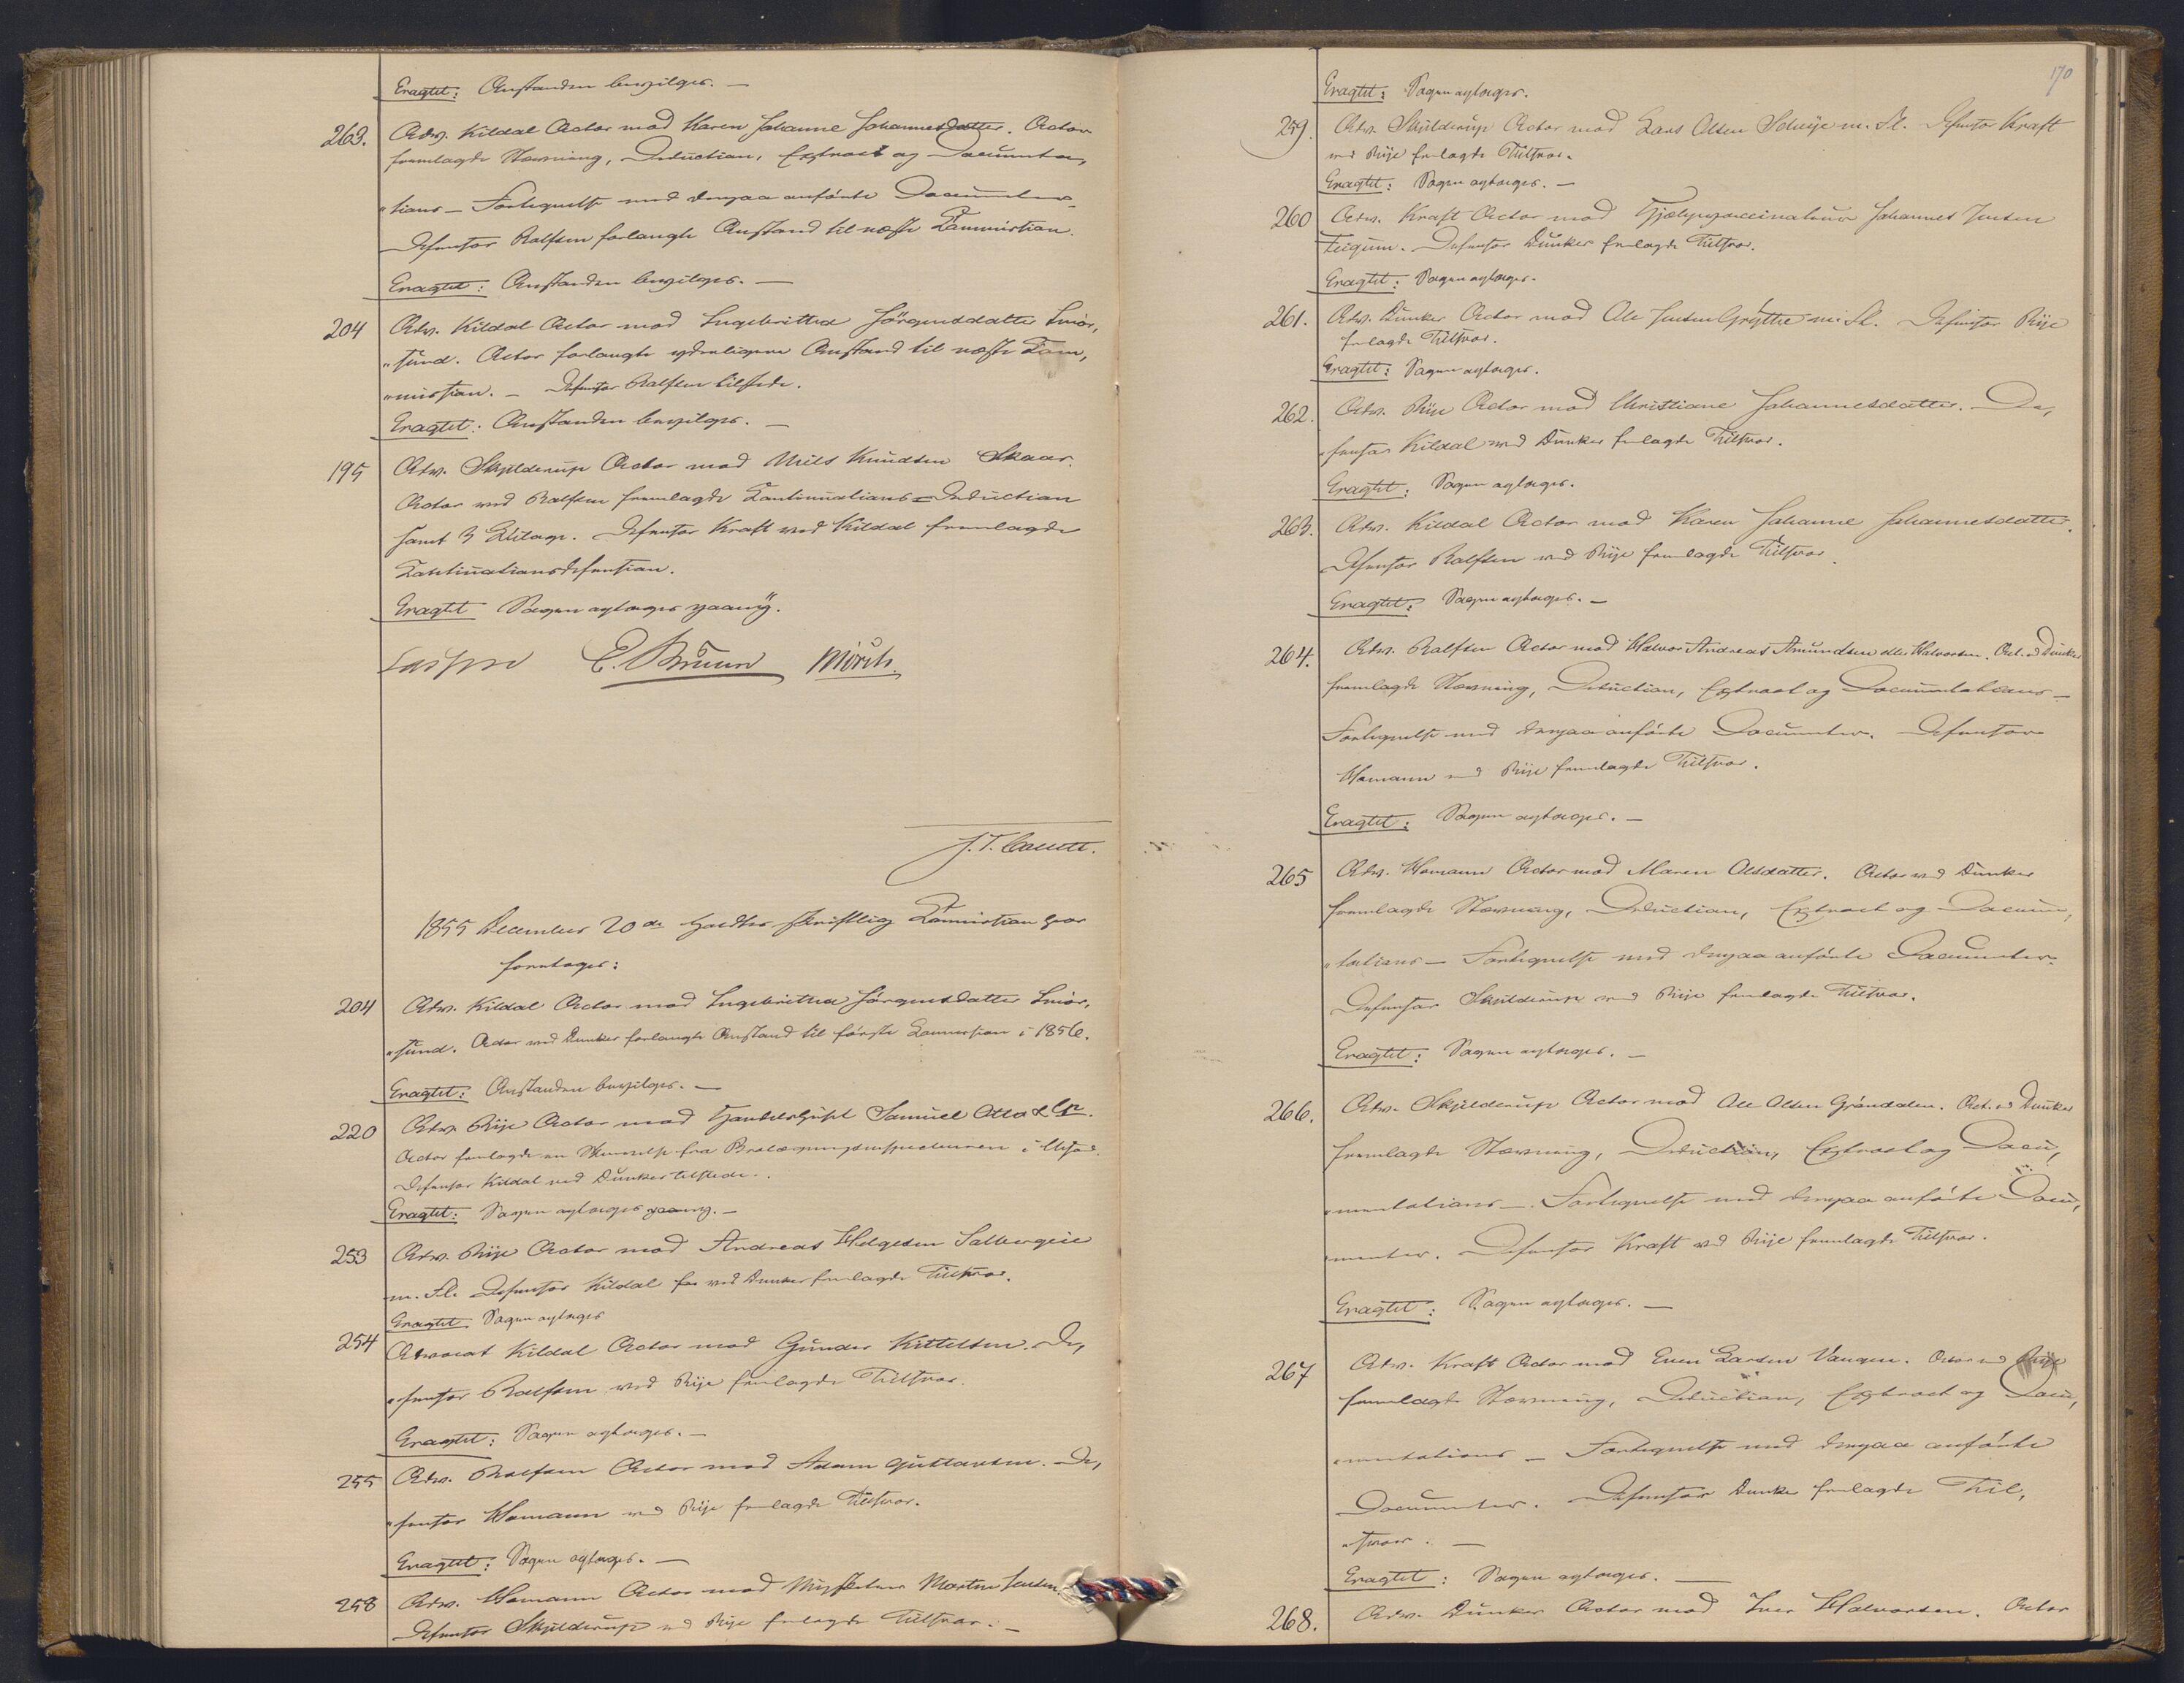 Eragtet: Anstanden bevilges. —
263. Adv. Kildal Actor mod Karen Johanne Johannesdatter. Actor
fremlagde Stævning, Deduction, Extract og Documenta,
"tions – Fortegnelse med derpaa anförte Documenter.
Defensor Ralfsen forlangte Anstand til næste Kammission.
Eragtet: Anstanden bevilges. —
204 Adv. Kildal Actor mod Ingebrittha Jörgensdatter Smör,
"sund. Actor forlangte yderligere Anstand til næste Kam,
"mission. – Defensor Ralfsen tilstede.
Eragtet: Anstanden bevilges. —
195 Adv. Skjelderup Actor mod Niels Knudsen Skaar.
Actor ved Ralfsen fremlagde Kontinuations=Deduction
samt 3 Bilage. Defensor Kraft ved Kildal fremlagde
Kontinuationsdefension.
Eragtet Sagen optages paany.
Lasson E. Bruun Mörch.
J. T.
1855 December 20de holdtes skriftlig Kammission hvor
foretages:
204 Adv. Kildal Actor mod Ingebrittha Jörgensdatter Smör,
"sund. Actor ved Dunker forlangte Anstand til förste Kammission i 1856.
Eragtet: Anstanden bevilges. —
220 Adv. Rije Actor mod Handelshuset Samuel Otto & Co.
Actor fremlagde en Skrivelse fra
Defensor Kildal ved Dunker tilstede.
Eragtet: Sagen optages paany. —
253 Adv. Rije Actor mod Andreas Helgesen
m. Fl. Defensor Kildal ved Dunker fremlagde Tilsvar.
Eragtet Sagen optages
254 Advocat Kildal Actor mod Gunder Kittelsen. De,
"fensor Ralfsen ved Rije fremlagde Tilsvar.
Eragtet: Sagen optages. —
255 Adv. Ralfsen Actor mod Adam Gustavsen. De,
"fensor Homann ved Rije fremlagde Tilsvar.
Eragtet: Sagen optages. —
258 Adv. Homann Actor mod Morten Jensen.
Defensor Skjelderup ved Rije fremlagde Tilsvar. —
170
Eragtet: Sagen optages.
259. Adv. Skjelderup Actor mod Lars Olsen m. Fl. Defensor Kraft
ved Rije fremlagde Tilsvar.
Eragtet: Sagen optages. —
260 Adv. Kraft Actor mod Hjælpevaccinateur Johannes Jensen
Teigum. Defensor Dunker fremlagde Tilsvar.
Eragtet: Sagen optages.
261. Adv. Dunker Actor mod Ole Jensen m. Fl. Defensor Rije
fremlagde Tilsvar.
Eragtet: Sagen optages.
262. Adv. Rije Actor mod Christiane Johannesdatter. De,
"fensor Kildal ved Dunker fremlagde Tilsvar.
Eragtet: Sagen optages.
263. Adv. Kildal Actor mod Karen Johanne Johannesdatter.
Defensor Ralfsen ved Rije fremlagde Tilsvar.
Eragtet: Sagen optages. —
264. Adv. Ralfsen Actor mod Halvor Andreas Amundsen eller Halvorsen. Act. vd Dunker
fremlagde Stævning, Deduction, Extract og Documentations –
Fortegnelse med derpaa anförte Documenter. Defensor
Homann ved Rije fremlagde Tilsvar.
Eragtet: Sagen optages. —
265 Adv. Homann Actor mod Maren Olsdatter. Actor ved Dunker
fremlagde Stævning, Deduction, Extract og Documen,
"tations – Fortegnelse med derpaa anförte Documenter.
Defensor Skjelderup ved Rije fremlagde Tilsvar.
Eragtet: Sagen optages. —
266. Adv. Skjelderup Actor mod Ole Olsen Gröndalen. Act. vd Dunker
fremlagde Stævning, Deduction, Extract og Docu,
"mentations –. Fortegnelse med derpaa anförte Docu,
"menter. Defensor Kraft ved Rije fremlagde Tilsvar.
Eragtet: Sagen optages. —
267 Adv. Kraft Actor mod Even Larsen Vangen. Actor ved Rije
fremlagde Stævning, Deduction, Extract og Docu,
"mentations – Fortegnelse med derpaa anförte
Documenter. Defensor Dunker fremlagde Til,
"svar. —
Eragtet: Sagen optages. —
268. Adv. Dunker Actor mod Iver Halvorsen. Actor